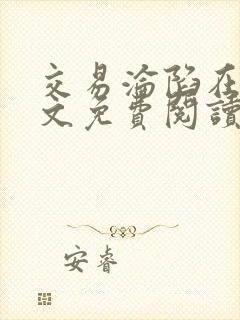 交易淪陷在
文免費閱讀
安睿